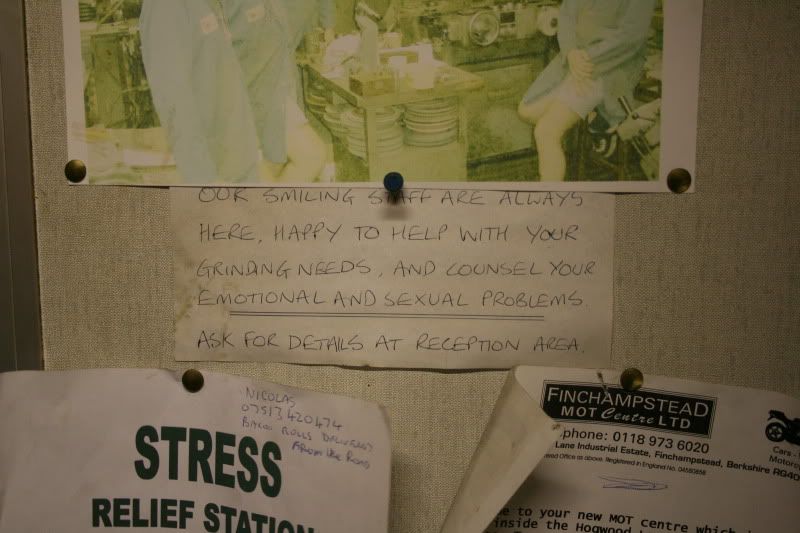 OUR SMILING STAFF ARE ALWAYS
HERE, HAPPY TO HELP WITH YOUR
GRINDING NEEDS, AND COUNSEL YOUR
EMOTIONAL AND SEXUAL PROBLEMS.
ASK FOR DETAILS AT RECEPTION AREA.
NICOLAS
07513420474
BACON ROLLS DELIVERED
FROM THE ROAD
STRESS
RELIEF STATION
FINCHAMPSTEAD
MOT Centre LTD
phone: 0118 973 6020
Lane Industriel Estate, Finchampstead, Berkshire RG40
Office as above. Registered in England No. 04580858
Cars -
Motorc
e to your new MOT centre which i
inside the Hogwood